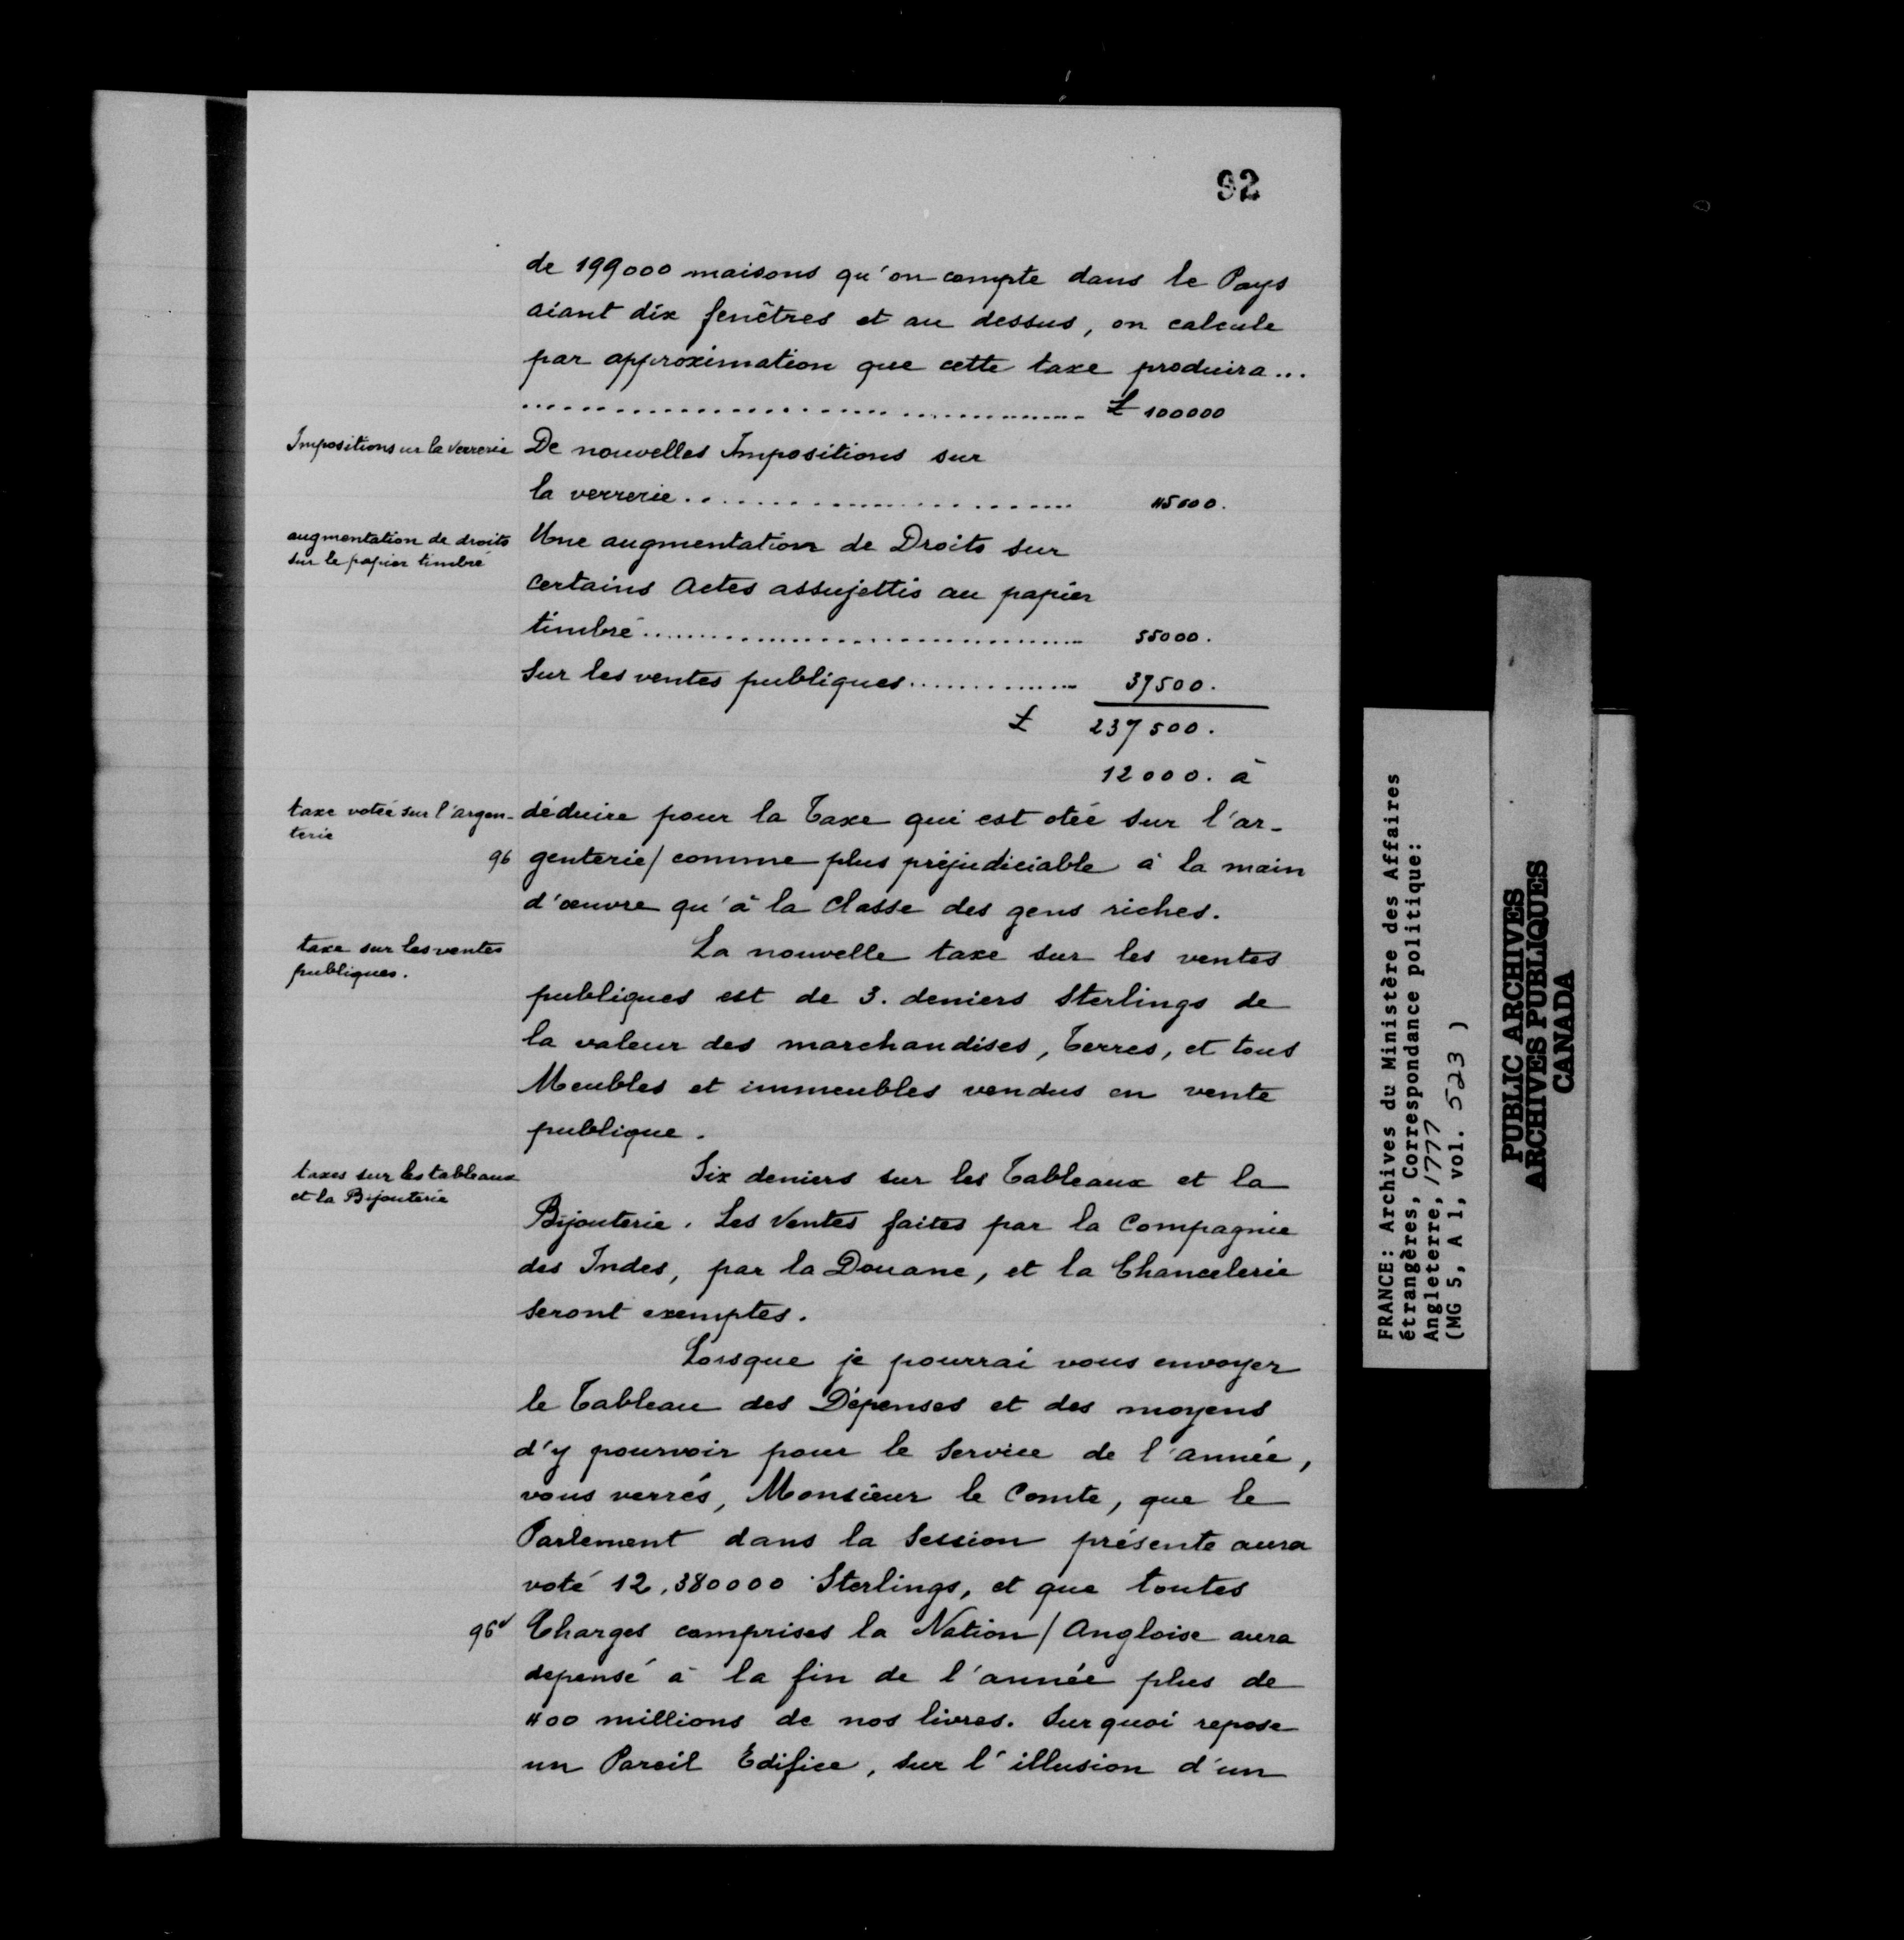 92
de 199000 maisons qu'on compte dans le Pays
aiant dix fenêtres et au dessus, on calcule
par approximation que cette taxe produira...
........................................ £ 100000
Impositions ur la Verrerie
De nouvelles Impositions sur
la verrerie........................ 45000.
augmentation de droits
sur le papier timbré
Une augmentation de Droits sur
certains Actes assujettis au papier
timbré................................ 55000.
Sur les ventes publiques............... 37500.
£ 237500.
12000. à
taxe votée sur l'argen-
terie
déduire pour la Taxe qui est otée sur l'ar-
96 genterie/ comme plus préjudiciable à la main
d'œuvre qu'à la Classe des gens riches.
taxe sur les ventes
publiques.
La nouvelle taxe sur les ventes
publiques est de 3. deniers Sterlings de
la valeur des marchandises, Terres, et tous
Meubles et immeubles vendus en vente
publique.
taxes sur les tableaux
et la Bijouterie
Six deniers sur les Tableaux et la
Bijouterie. Les Ventes faites par la Compagnie
des Indes, par la Douane, et la Chancelerie
seront exemptes.
Lorsque je pourrai vous envoyer
le Tableau des Dépenses et des moyens
d'y pourvoir pour le Service de l'année,
vous verrés, Monsieur le Comte, que le
Parlement dans la Session présente aura
voté 12,380000 Sterlings, et que toutes
96v Charges comprises la Nation/Angloise aura
depensé à la fin de l'année plus de
400 millions de nos livres. Sur quoi repose
un Pareil Edifice, sur l'illusion d'un
FRANCE: Archives du Ministère des Affaires
étrangères, Correspondance politique:
Angleterre, 1777
(MG 5, A 1, vol. 523 )
PUBLIC ARCHIVES
ARCHIVES PUBLIQUES
CANADA